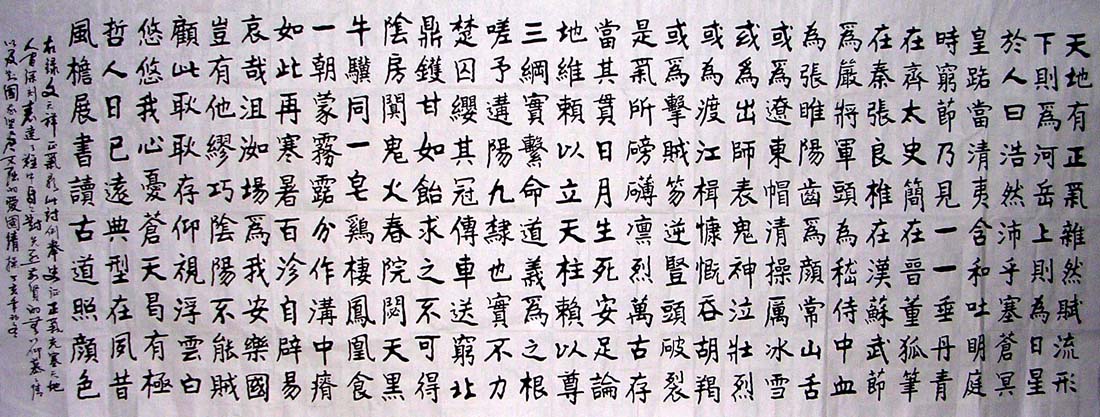 天地有正氣雜然賦流形
下則爲河岳上則為日星
於人曰浩然沛乎塞蒼冥
皇路當清夷含和吐明庭
時窮節乃見一一垂丹青
在齊太史簡在晉董狐筆
在秦張良椎在漢蘇武節
爲嚴將軍頭為嵇侍中血
為張睢陽齒爲顏常山舌
或爲遼東帽清操厲冰雪
或爲出師表鬼神泣壯烈
或為渡江楫慷慨吞胡羯
或爲擊賊笏逆豎頭破裂
是氣所磅礴凛烈萬古存
當其貫日月生死安足論
地維賴以立天柱賴以尊
三綱實繫命道義爲之根
嗟予遘陽九隸也實不力
楚囚纓其冠傳車送窮北
鼎鑊甘如飴求之不可得
陰房闃鬼火春院閟天黑
牛驥同一皂鷄棲鳳凰食
一朝蒙霧露分作溝中瘠
如此再寒暑百沴自辟易
哀哉沮洳場爲我安樂國
豈有他繆巧陰陽不能賊
顧此耿耿存仰視浮雲白
悠悠我心憂蒼天曷有極
哲人日已遠典型在夙昔
風檐展書讀古道照顏色
右錄文天祥正氣歌 正氣充塞天地
人 表達了 中自己對
以及 的愛國情操